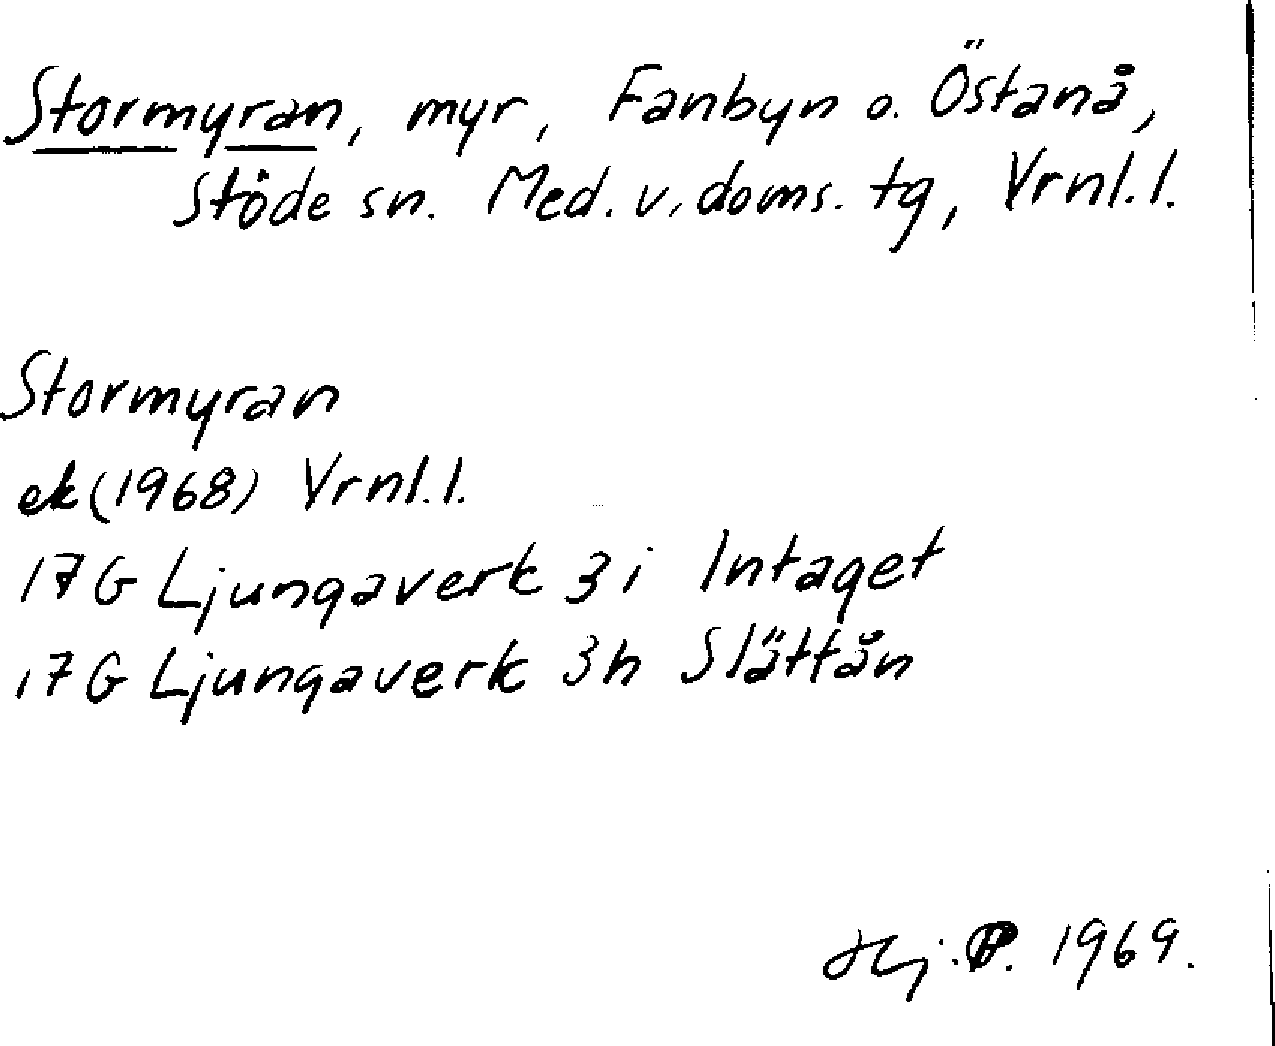 Stormyran, myr, Fanbyn o. Östanå,
Stöde sn. Med. v. doms. tg, Vrnl. l.
Stormyran
ek (1968) Vrnl. l.
17 G Ljungaverk 3 i Intaget
17 G Ljungaverk 3h Slättån
Hj. P. 1969.